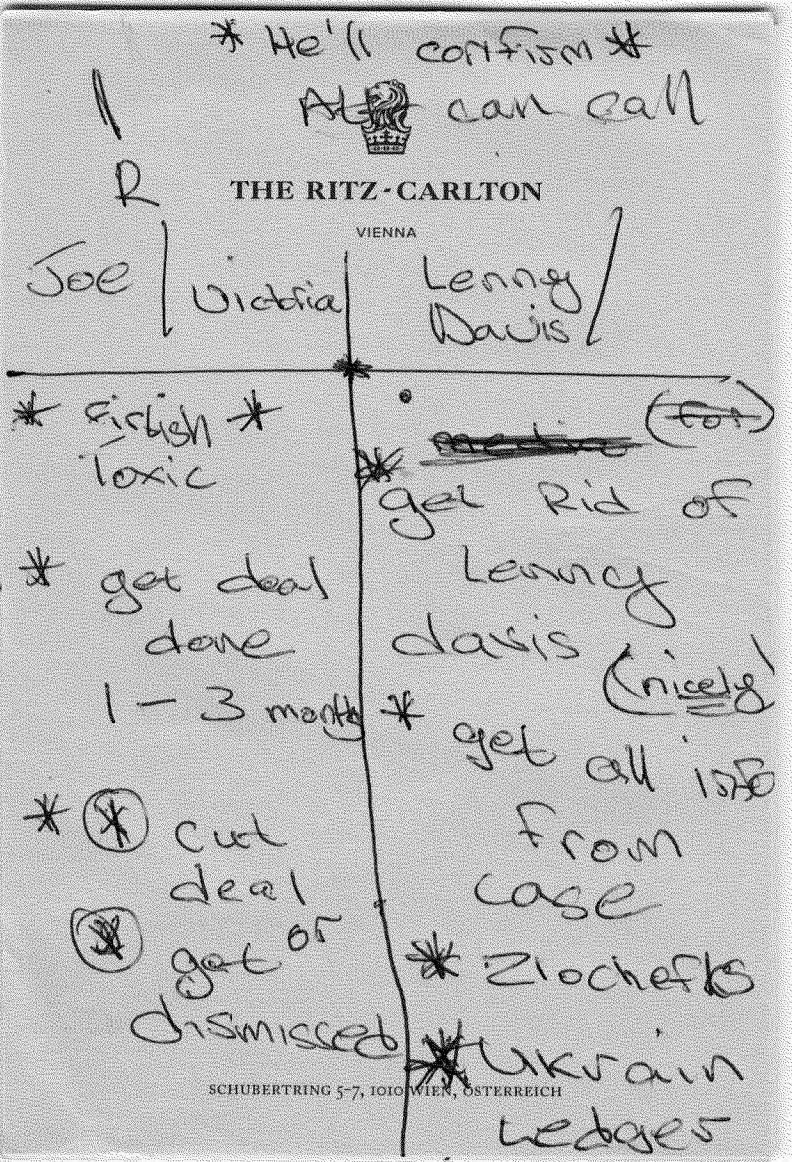 * He'll confirm *
can call
R
THE RITZ-CARLTON
VIENNA
Joe / Victoria
Lenny
Davis /
* Firtish *
Toxic
* get deal
done
1 - 3 month
* * cut
deal
* get or
dismissed
(for)
* get Rid of
Lenny
davis (nicely)
* get all info
From
case
* Zlochefks
* Ukrain
Ledger
SCHUBERTRING 5-7, 1010 WIEN, ÖSTERREICH